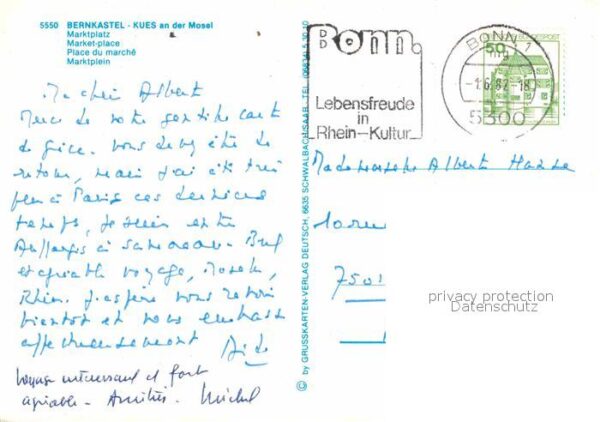 5550 BERNKASTEL - KUES an der Mosel
Marktplatz
Market-place
Place du marché
Marktplein
Bonn.
Lebensfreude
in
Rhein-Kultur
BONN 1
-1.6.82-18
5300
50
© by GRUSSKARTEN-VERLAG DEUTSCH, 6635 SCHWALBACH/SAAR, TEL. (06834) 5 30 40
Ma chère Alberte
Merci de votre gentille carte
de Grèce. Vous devez être de
retour, mais j'ai été très
peu à Paris ces derniers
temps, je suis entre
et à Bref
et agréable voyage, Moselle,
Rhin. J'espère vous revoir
bientôt et vous embrasse
affectueusement
Voyage intéressant et fort
agréable. Amitiés. Michel
Mademoiselle Alberte
7501
privacy protection
Datenschutz